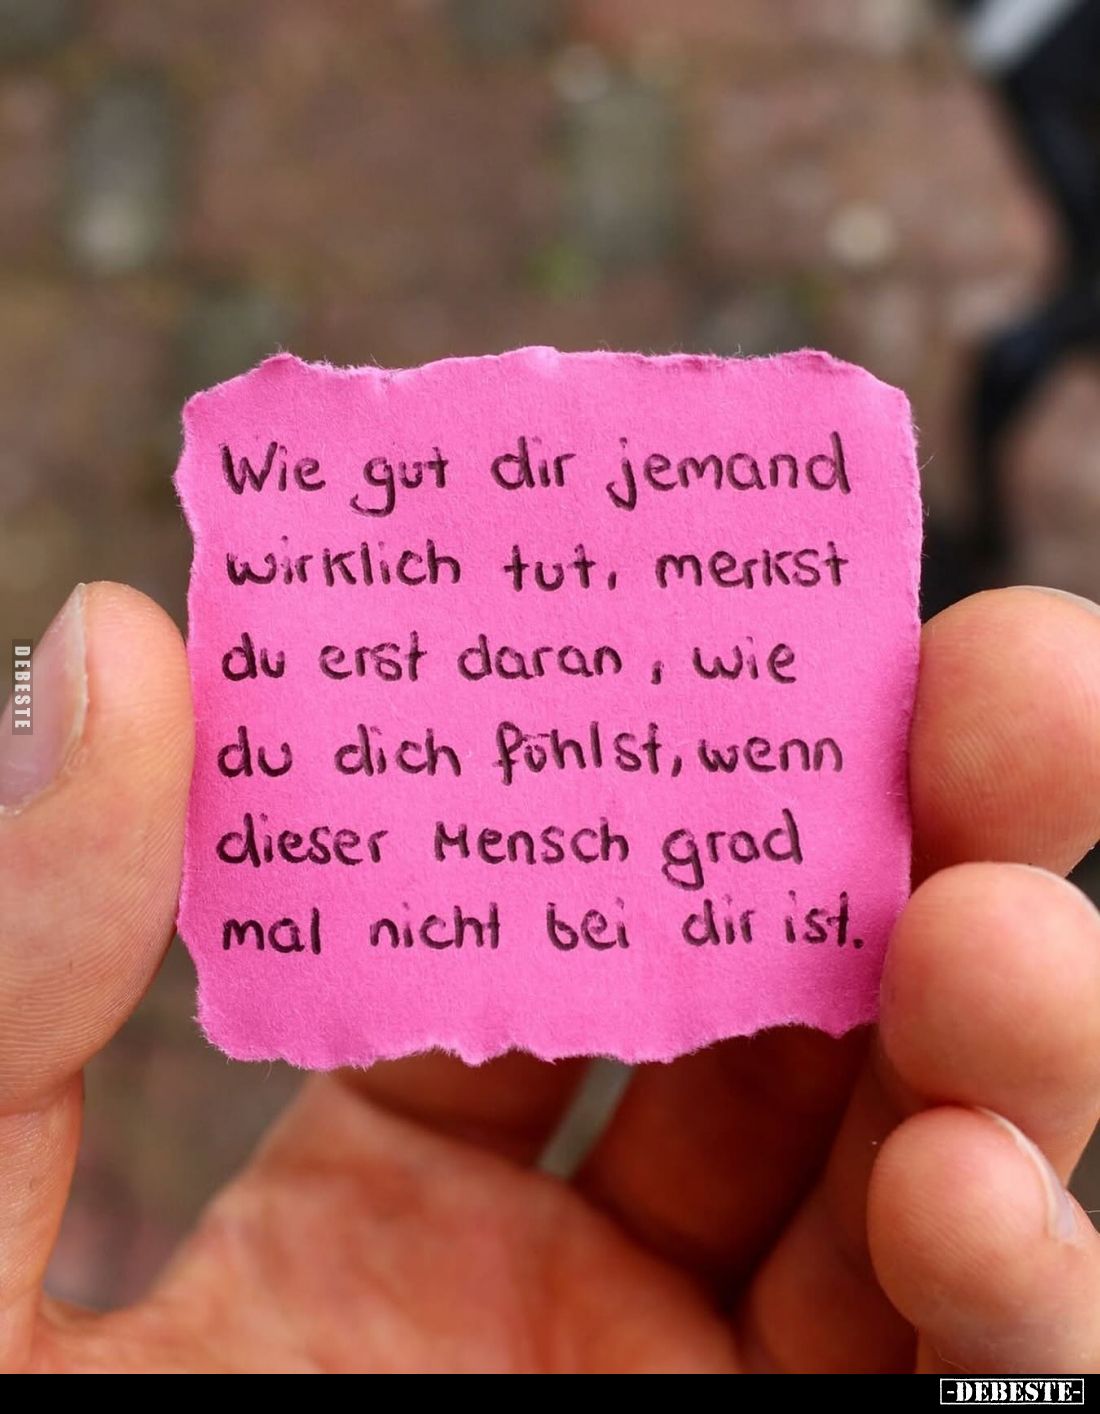 Wie gut dir jemand
wirklich tut, merkst
du erst daran, wie
du dich fühlst, wenn
dieser Mensch grad
mal nicht bei dir ist.
DEBESTE
-DEBESTE-